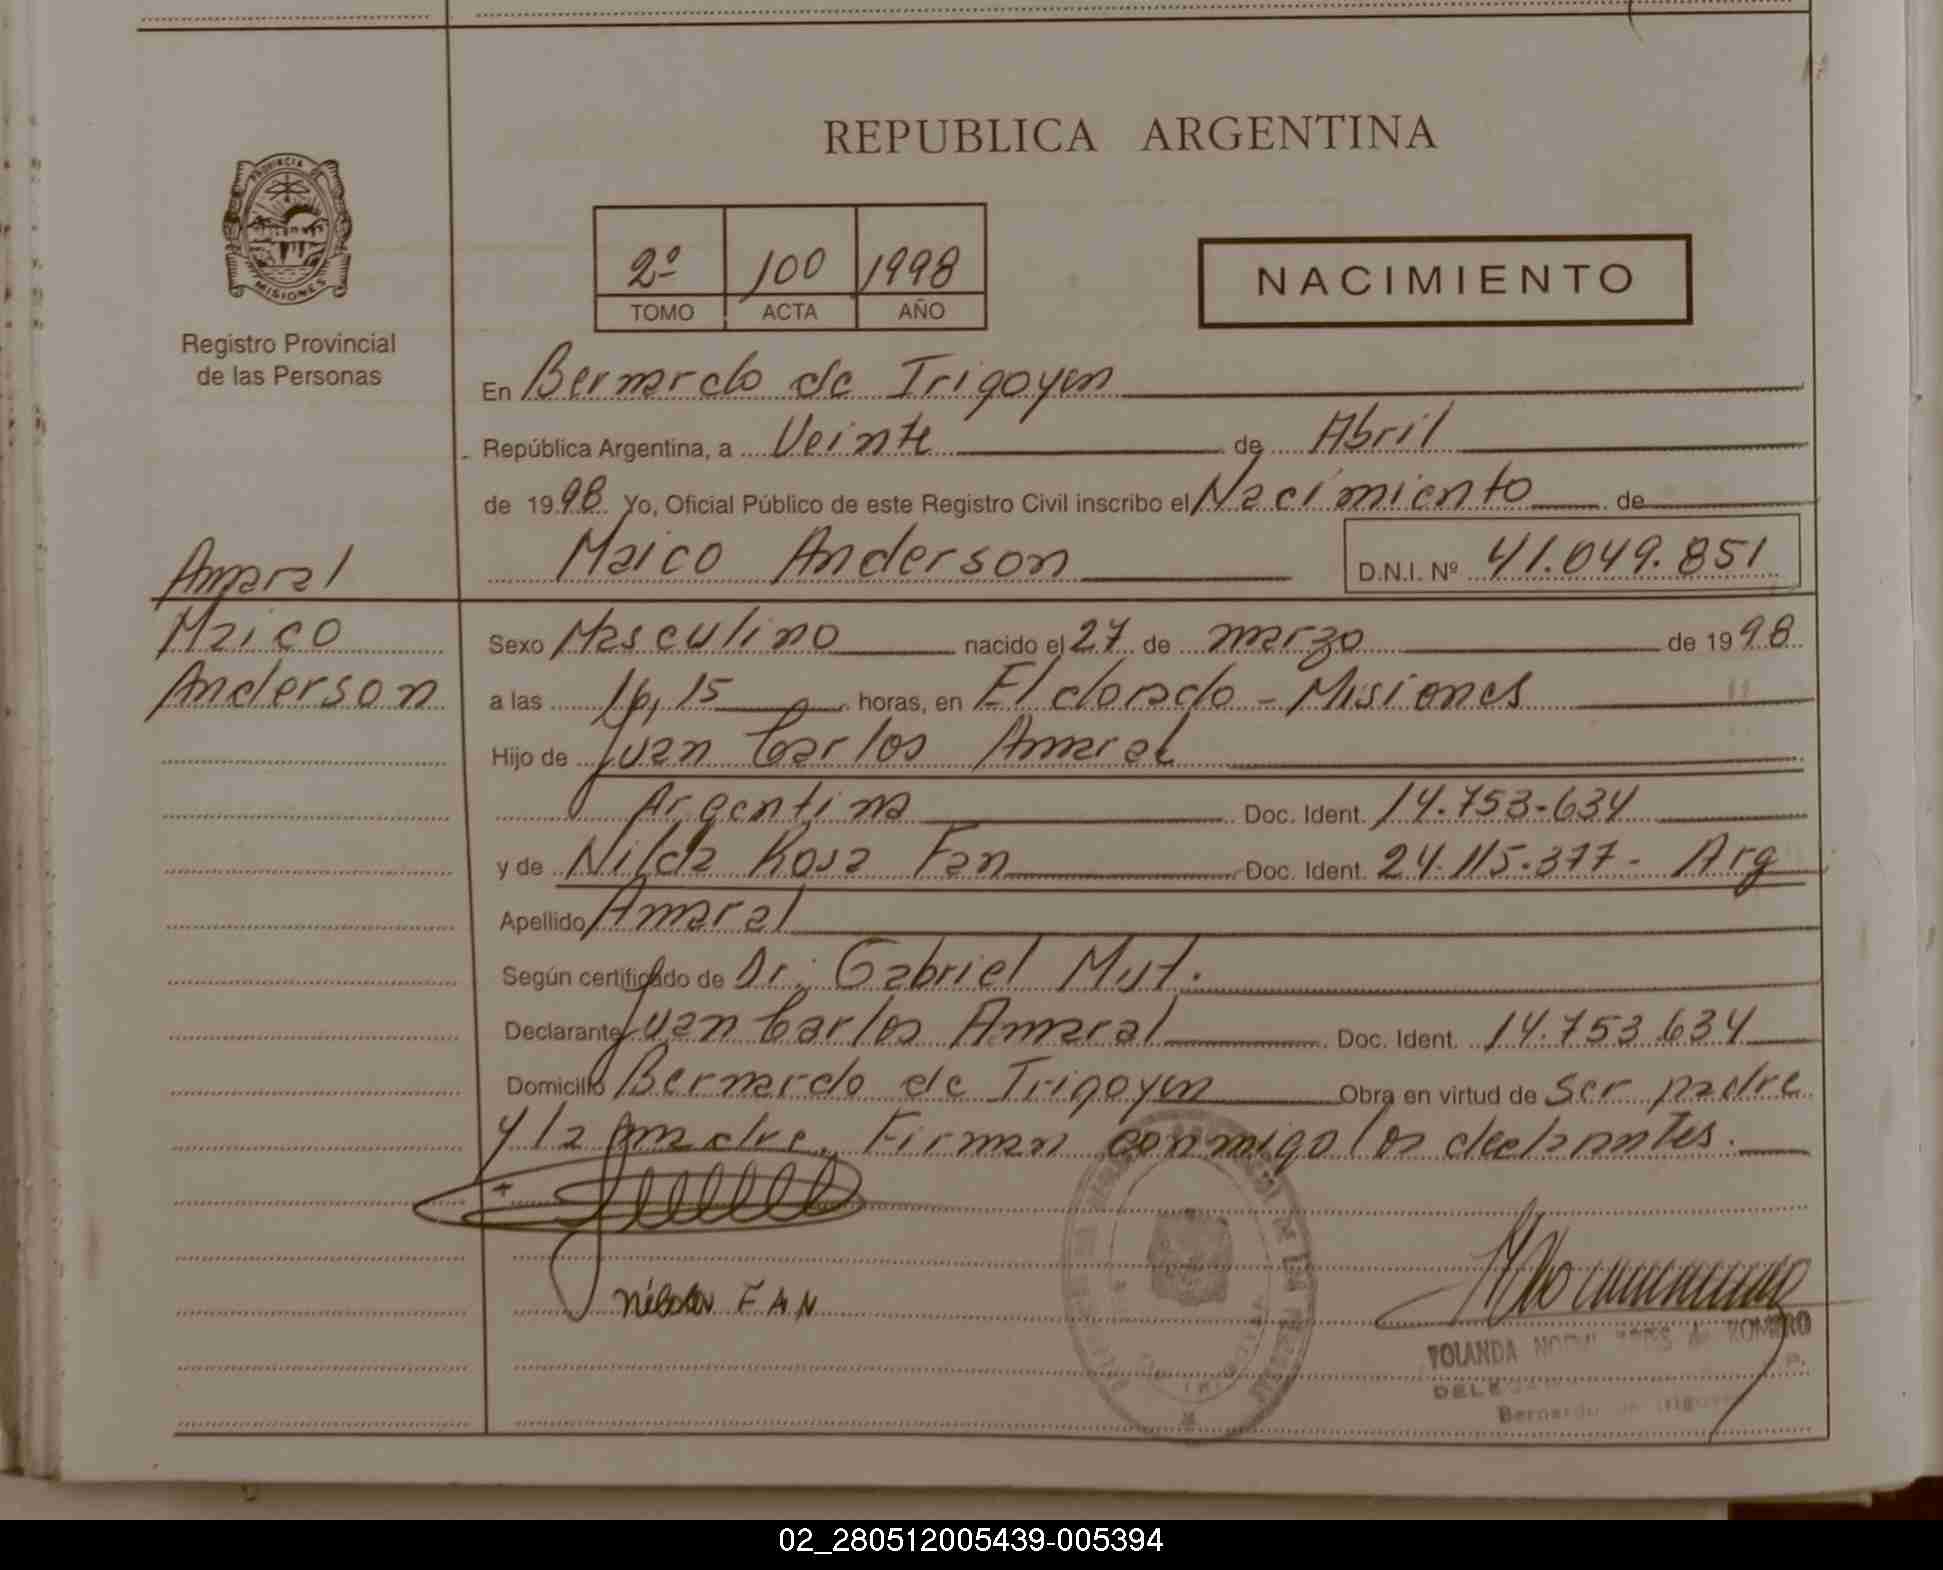 REPUBLICA ARGENTINA
PROVINCIA DE
MISIONES
Registro Provincial
de las Personas
2º 100 1998
TOMO ACTA AÑO
NACIMIENTO
En Bernardo de Irigoyen
República Argentina, a Veinte de Abril
de 1998 Yo, Oficial Público de este Registro Civil inscribo el Nacimiento de
Maico Anderson D.N.I. Nº 41.049.851
Amaral
Maico
Anderson
Sexo Masculino nacido el 27 de marzo de 1998
a las 16,15 horas, en Eldorado - Misiones
Hijo de Juan Carlos Amaral
Argentina Doc. Ident. 14.753-634
y de Nilda Rosa Fan Doc. Ident. 24.115.377- Arg
Apellido Amaral
Según certificado de Dr. Gabriel Myt.
Declarante Juan Carlos Amaral Doc. Ident. 14.753.634
Domicilio Bernardo de Irigoyen Obra en virtud de ser padre
y la madre. Firman conmigo los declarantes.
FAN
YOLANDA de ROMERO
Bernardo de Irigoyen
02_280512005439-005394